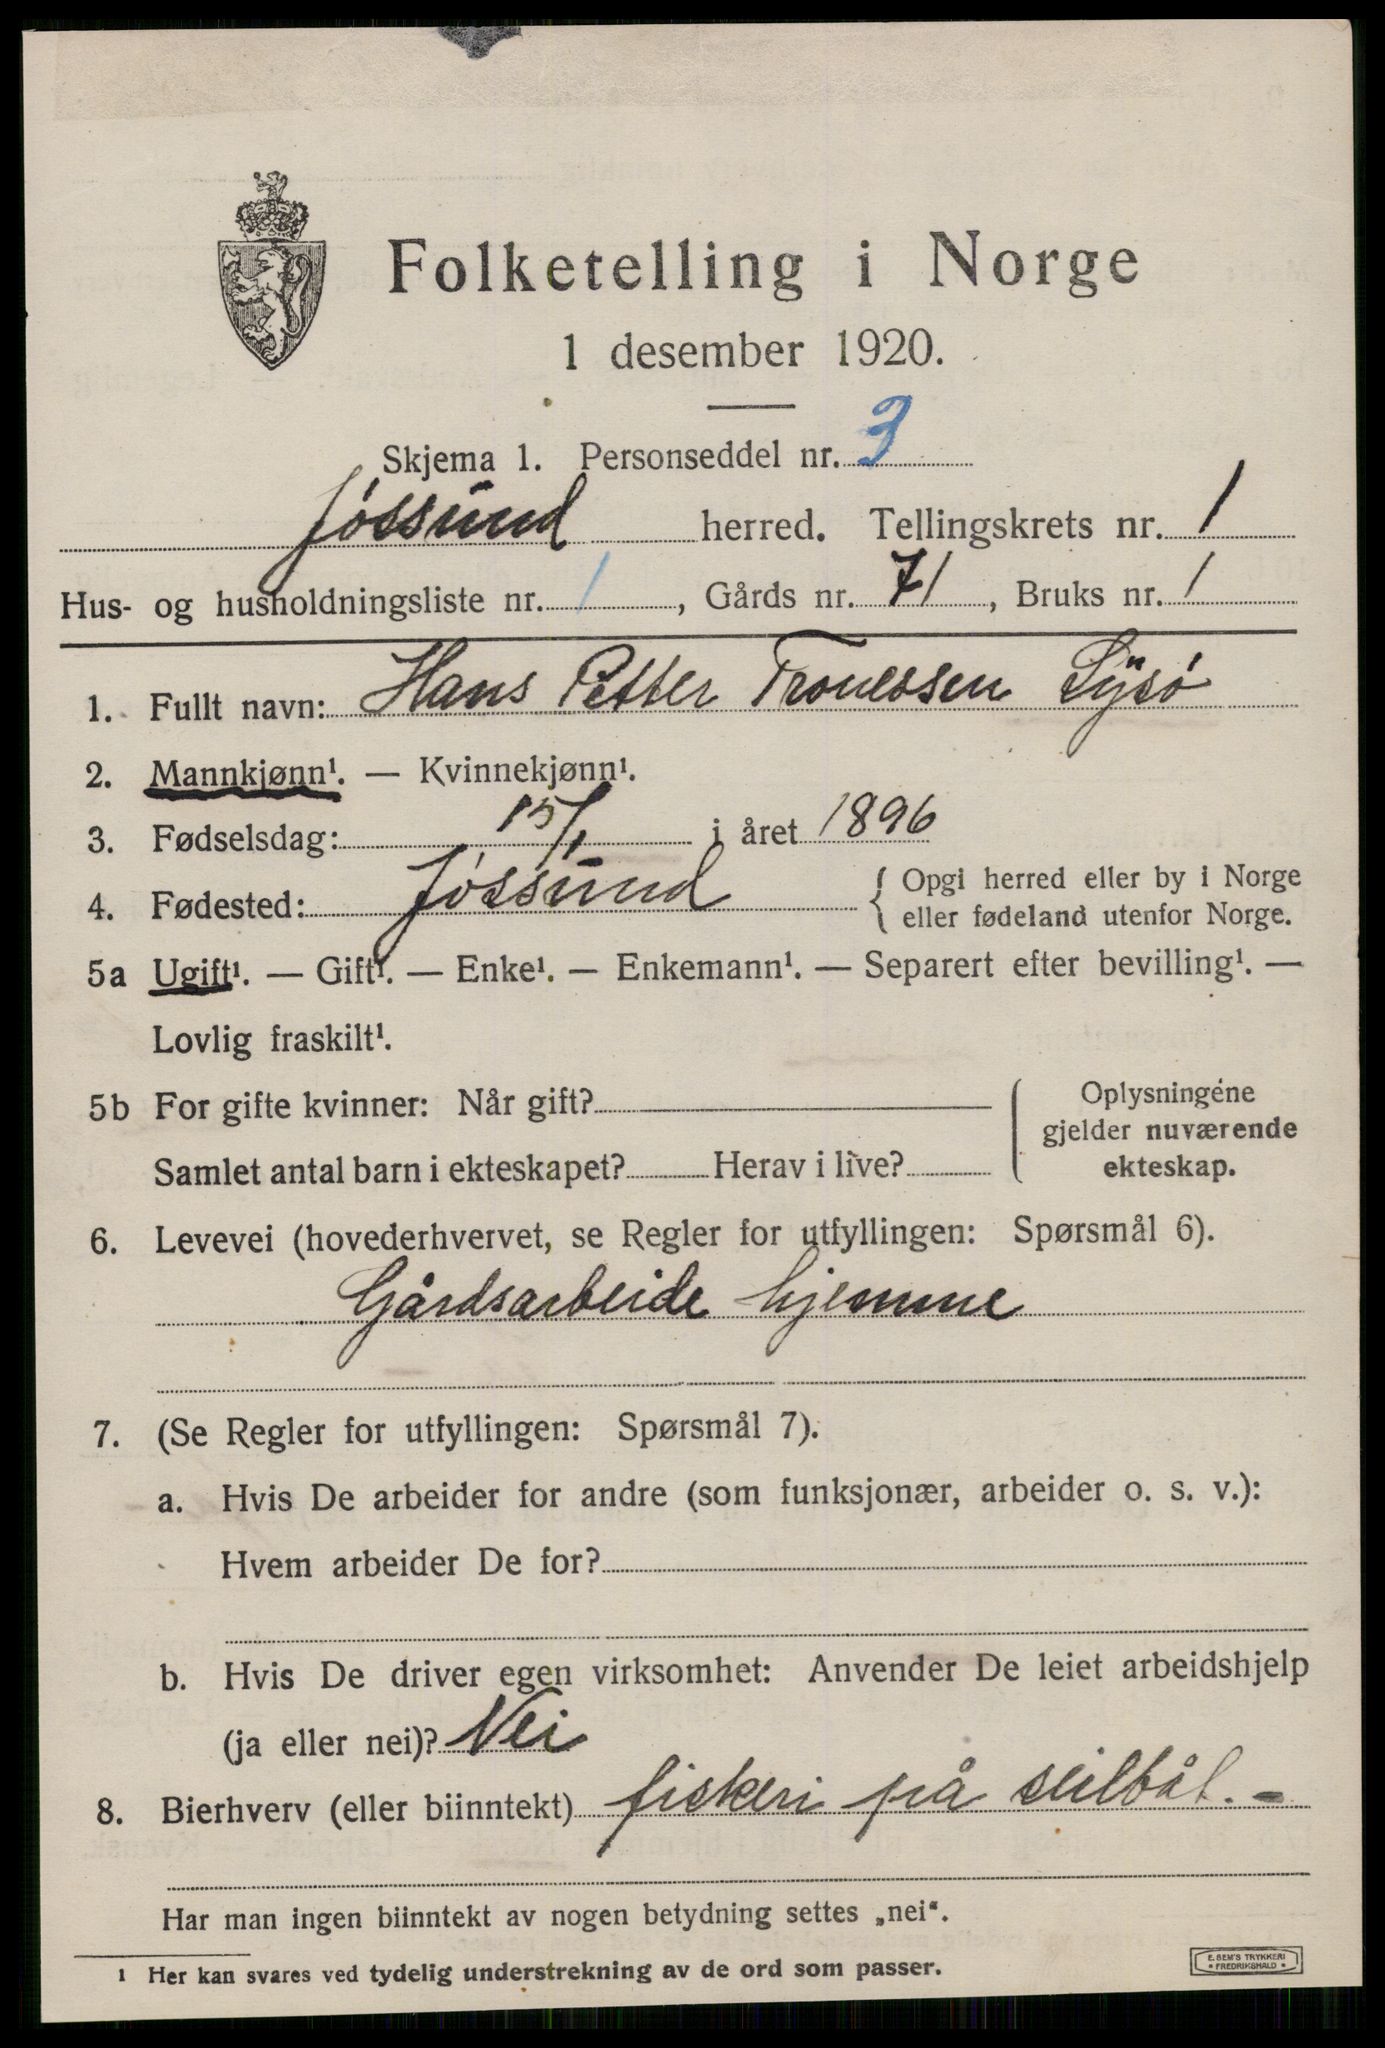 Folketelling i Norge
1 desember 1920.
Skjema 1. Personseddel nr. 3
Jóssund herred. Tellingskrets nr. 1
Hus- og husholdningsliste nr. 1, Gårds nr. 71, Bruks nr. 1
1. Fullt navn: Hans Petter Lÿsó
2. Mannkjønn¹. — Kvinnekjønn¹.
3. Fødselsdag: 15/1 i året 1896
4. Fødested: Jóssund { Opgi herred eller by i Norge
eller fødeland utenfor Norge.
5a Ugift¹. — Gift¹. — Enke¹. — Enkemann¹. — Separert efter bevilling¹. —
Lovlig fraskilt¹.
5b For gifte kvinner: Når gift?
Samlet antal barn i ekteskapet? Herav i live?
Oplysningene
gjelder nuværende
ekteskap.
6. Levevei (hovederhvervet, se Regler for utfyllingen: Spørsmål 6).
Gårdsarbeide hjemme
7. (Se Regler for utfyllingen: Spørsmål 7).
a. Hvis De arbeider for andre (som funksjonær, arbeider o. s. v.):
Hvem arbeider De for?
b. Hvis De driver egen virksomhet: Anvender De leiet arbeidshjelp
(ja eller nei)? Nei
8. Bierhverv (eller biinntekt) fiskeri på seilbåt. -
Har man ingen biinntekt av nogen betydning settes „nei“.
1 Her kan svares ved tydelig understrekning av de ord som passer.
E. SEM'S TRYKKERI
• FREDRIKSHALD •